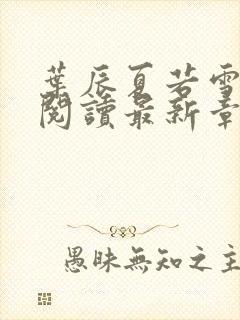 葉辰夏若雪
閱讀最新章
愚昧無知之主